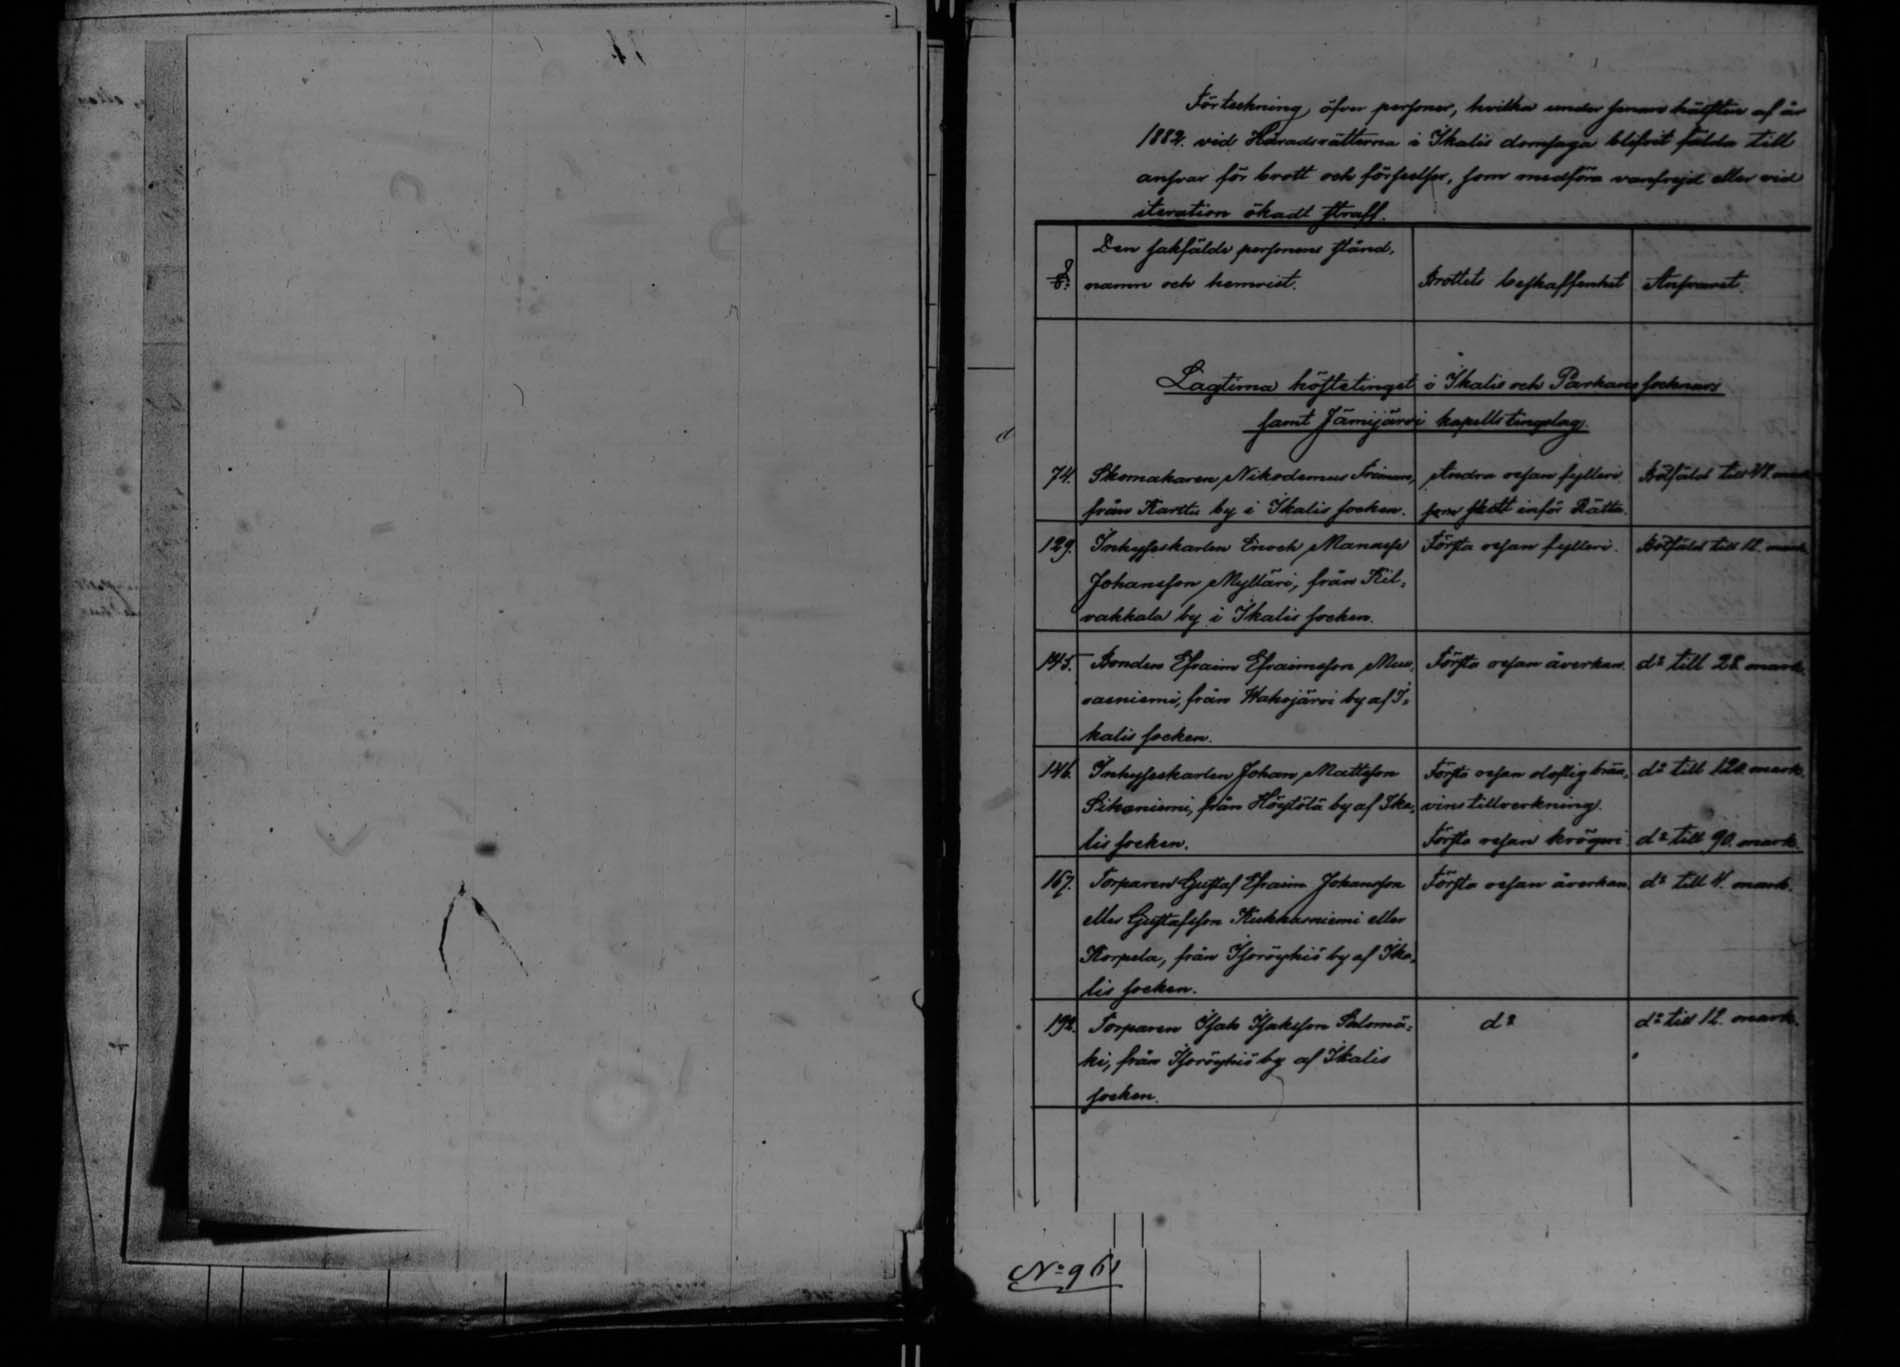 Förteckning öfver personer, hvilka under senare hälften af år
1882 vid Häradsrätterna i Ikalis domsaga blifvit fälda till
ansvar för brott och förseelser, som medföra vanfrejd eller vid
iteration ökadt straff.
§.
Den sakfälde personens stånd,
namn och hemvist.
Brottets beskaffenhet
Ansvaret.
Lagtima höstetinget i Ikalis och Parkano socknars
samt Jämijärvi kapells tingslag.
74. Skomakaren Nikodemus Friman, Andra resan fylleri Botfäld till 48 mark
från Karttu by i Ikalis socken. som skett inför Rätta.
129. Inhyseskarlen Enoch Manasse Första resan fylleri. Botfäld till 12 mark
Johansson Mylläri, från Kil-
vakkala by i Ikalis socken.
145. Bonden Efraim Efraimsson Mus- Första resan åverkan. do till 28 mark.
taeniemi, från Wahojärvi by af I-
kalis socken.
146. Inhyseskarlen Johan Mattsson Första resan oloflig brän- do till 120 mark.
Sikaniemi, från Höytölä by af Ika- vins tillverkning.
lis socken. Första resan krögeri do till 90 mark.
167. Torparen Gustaf Efraim Johansson Första resan åverkan do till 4 mark.
eller Gustafsson Kukkasniemi eller
Korpela, från Isoröyhiö by af Ika-
lis socken.
192. Torparen Isak Isaksson Salomä- do do till 12 mark.
ki, från Isoröyhiö by af Ikalis
socken.
No 96